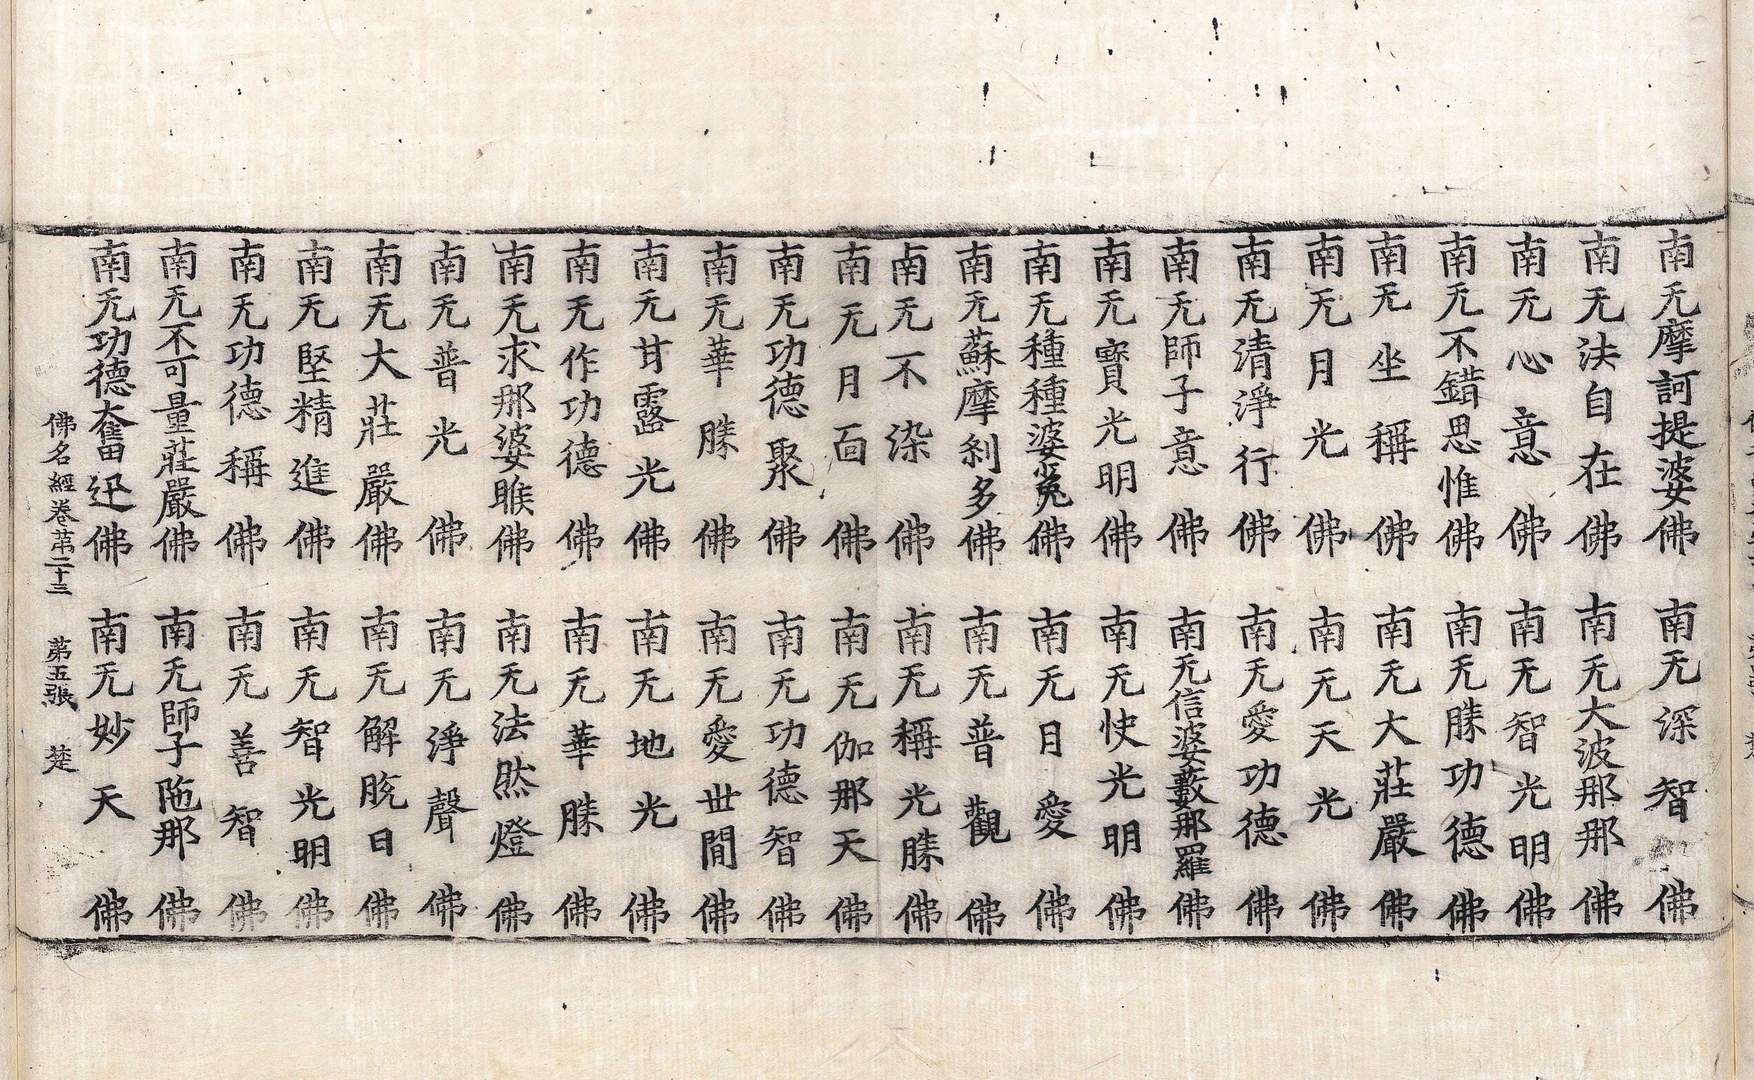 南无摩訶提婆佛　南无深智佛
南无法自在佛　南无大波那那佛
南无心意佛　南无智光明佛
南无不錯思惟佛　南无勝功德佛
南无坐稱佛　南无大莊嚴佛
南无月光佛　南无天光佛
南无清淨行佛　南无愛功德佛
南无師子意佛　南无信婆藪那羅佛
南无寶光明佛　南无快光明佛
南无種種婆㝹佛　南无日愛佛
南无蘇摩刹多佛　南无普觀佛
南无不染佛　南无稱光勝佛
南无月面佛　南无伽那天佛
南无功德聚佛　南无功德智佛
南无華勝佛　南无愛世間佛
南无甘露光佛　南无地光佛
南无作功德佛　南无華勝佛
南无求那婆睺佛　南无法然燈佛
南无普光佛　南无淨聲佛
南无大莊嚴佛　南无解脫日佛
南无堅精進佛　南无智光明佛
南无功德稱佛　南无善智佛
南无不可量莊嚴佛　南无師子陁那佛
南无功德奮迅佛　南无妙天佛
佛名經卷第二十三　第五張　楚